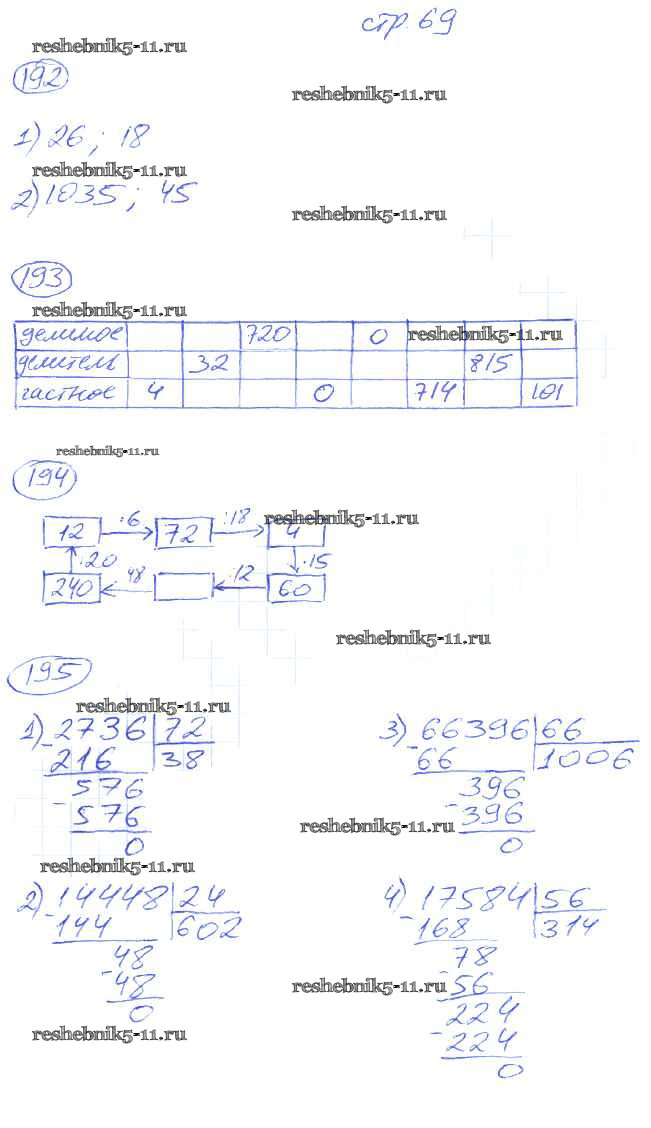 стр. 69
reshebnik5-11.ru
192
reshebnik5-11.ru
1) 26 ; 18
reshebnik5-11.ru
2) 1035 ; 45
reshebnik5-11.ru
193
reshebnik5-11.ru
делимое 720 0 reshebnik5-11.ru
делитель 32 815
частное 4 0 714 101
reshebnik5-11.ru
194
12 :6 72 :18 4 reshebnik5-11.ru
:20 ·15
240 48 :12 60
reshebnik5-11.ru
195
reshebnik5-11.ru
1) 2736 72
- 216 38
576
- 576
0
reshebnik5-11.ru
3) 66396 66
- 66 1006
396
- 396
reshebnik5-11.ru
0
2) 14448 24
- 144 602
48
- 48
0
reshebnik5-11.ru
4) 17584 56
- 168 314
78
- 56
reshebnik5-11.ru
224
- 224
0